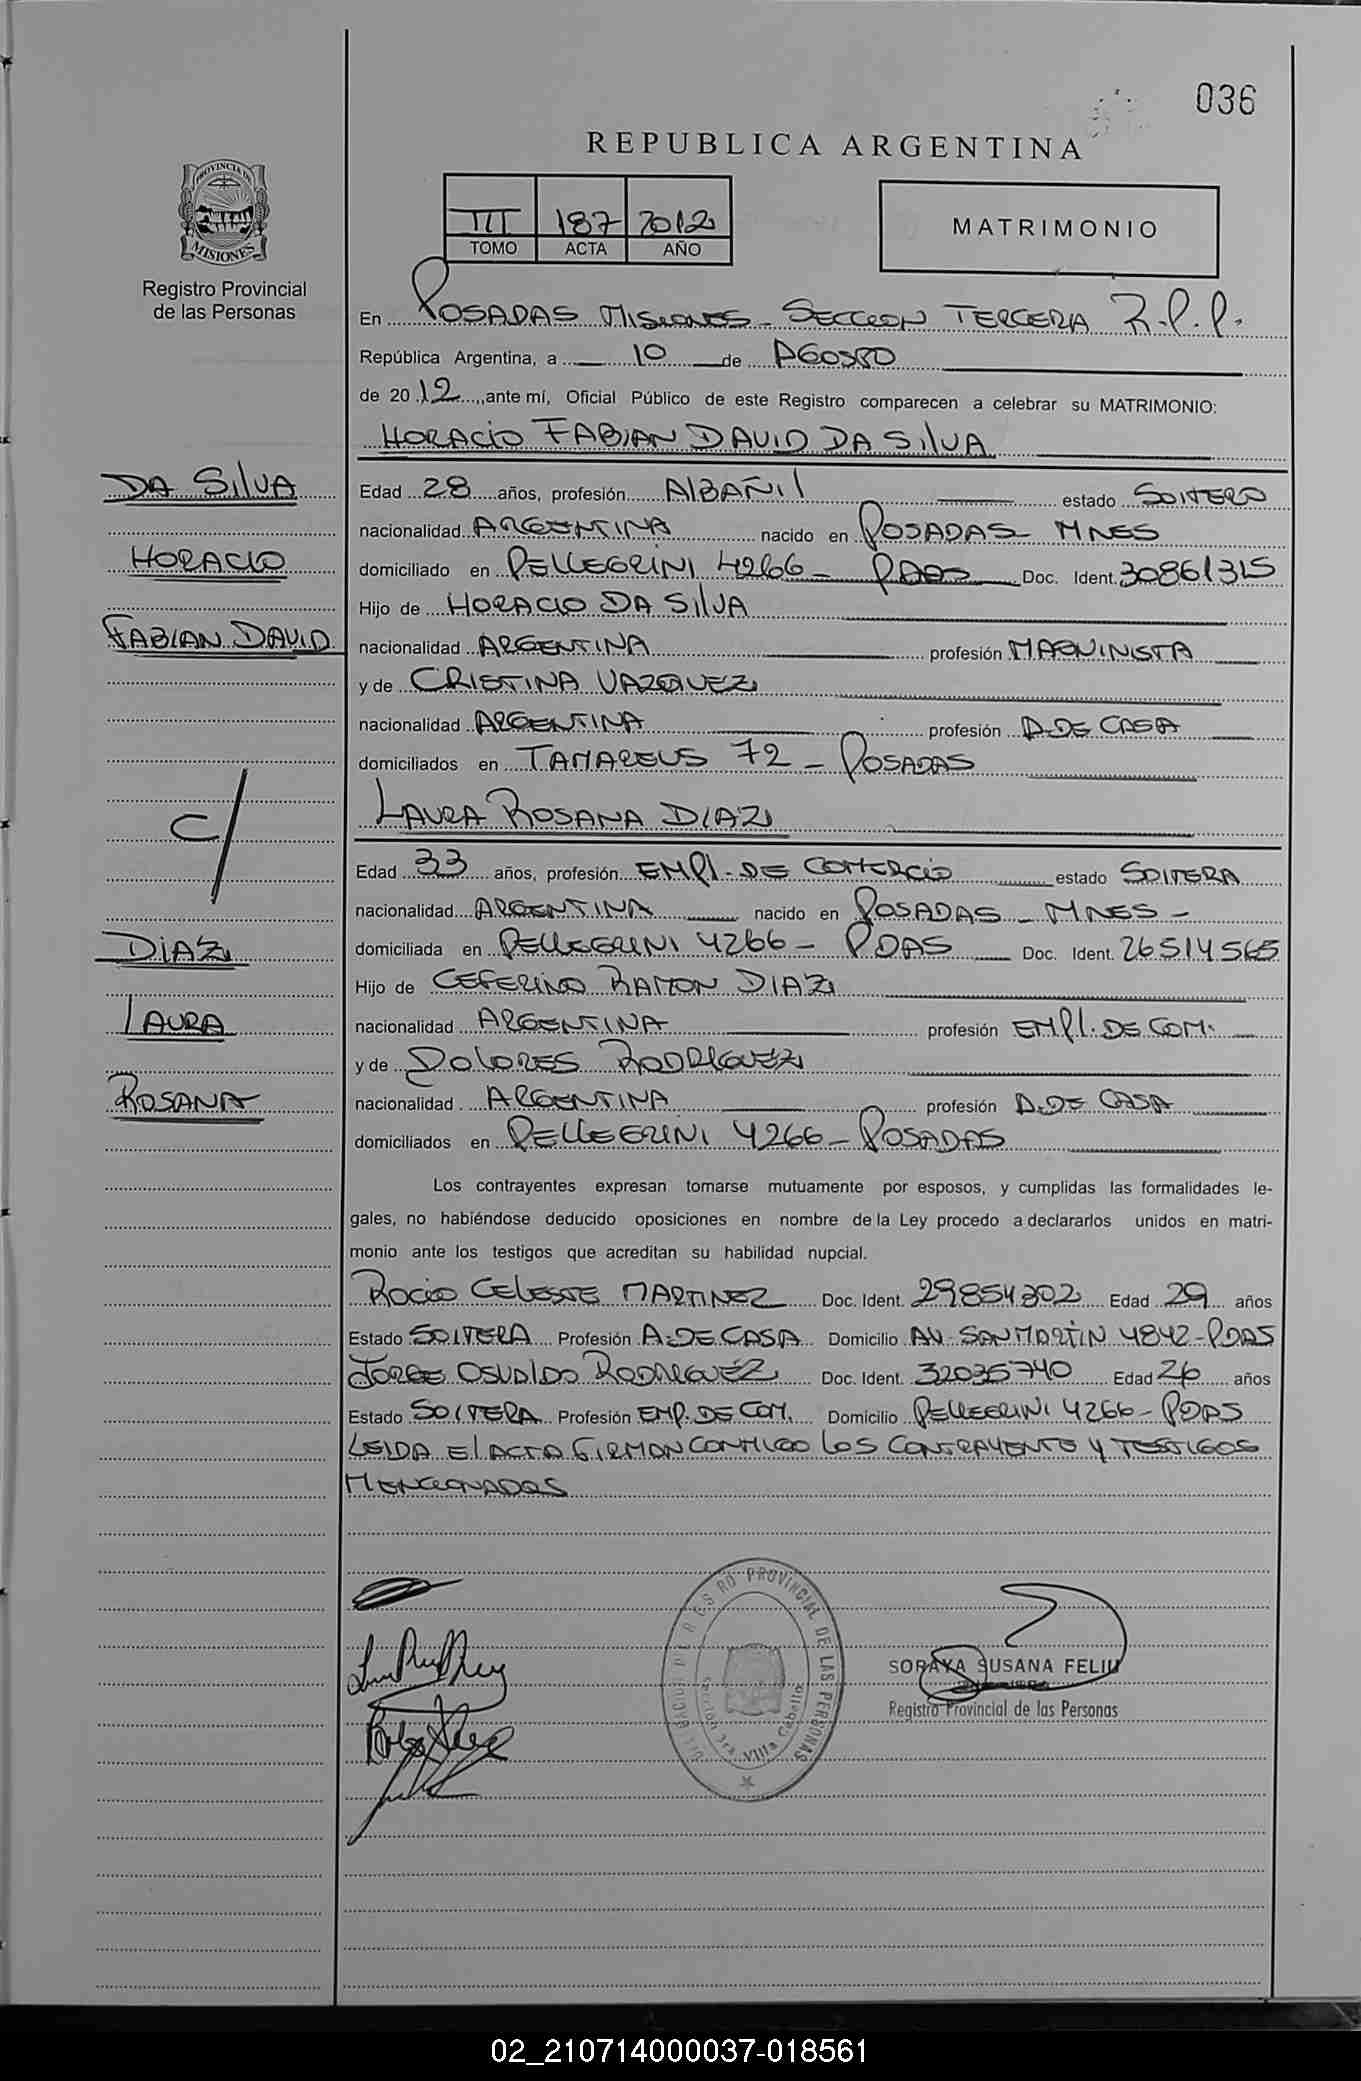 036
REPUBLICA ARGENTINA
PROVINCIA DE
MISIONES
Registro Provincial
de las Personas
III 187 2012
TOMO ACTA AÑO
MATRIMONIO
En POSADAS MISIONES - SECCION TERCERA R.P.P.
República Argentina, a 10 de AGOSTO
de 2012, ante mí, Oficial Público de este Registro comparecen a celebrar su MATRIMONIO:
HORACIO FABIAN DAVID DA SILVA
DA SILVA
Edad 28 años, profesión ALBAÑIL estado SOLTERO
nacionalidad ARGENTINA nacido en POSADAS MNES
HORACIO
domiciliado en PELLEGRINI 4266 - PDAS Doc. Ident. 30861315
Hijo de HORACIO DA SILVA
FABIAN DAVID
nacionalidad ARGENTINA profesión MAQUINISTA
y de CRISTINA VAZQUEZ
nacionalidad ARGENTINA profesión A.DE CASA
domiciliados en 72 - POSADAS
C/
LAURA ROSANA DIAZ
Edad 33 años, profesión EMPL. DE COMERCIO estado SOLTERA
nacionalidad ARGENTINA nacido en POSADAS - MNES -
DIAZ
domiciliada en PELLEGRINI 4266 - PDAS Doc. Ident. 26514565
Hijo de CEFERINO RAMON DIAZ
LAURA
nacionalidad ARGENTINA profesión EMPL. DE COM.
y de DOLORES RODRIGUEZ
ROSANA
nacionalidad ARGENTINA profesión A.DE CASA
domiciliados en PELLEGRINI 4266 - POSADAS
Los contrayentes expresan tomarse mutuamente por esposos, y cumplidas las formalidades le-
gales, no habiéndose deducido oposiciones en nombre de la Ley procedo a declararlos unidos en matri-
monio ante los testigos que acreditan su habilidad nupcial.
ROCIO CELESTE MARTINEZ Doc. Ident. 29854302 Edad 29 años
Estado SOLTERA Profesión A.DE CASA Domicilio AV. SAN MARTIN 4842 - PDAS
JORGE OSVALDO RODRIGUEZ Doc. Ident. 32035740 Edad 26 años
Estado SOLTERA Profesión EMP. DE COM. Domicilio PELLEGRINI 4266 - PDAS
LEIDA EL ACTA FIRMAN CONMIGO LOS CONTRAYENTE Y TESTIGOS
MENCIONADOS
PROVINCIAL DE LAS PERSONAS
Sección 3ra. Villa Cabello
SORAYA SUSANA FELIU
Registro Provincial de las Personas
02_210714000037-018561